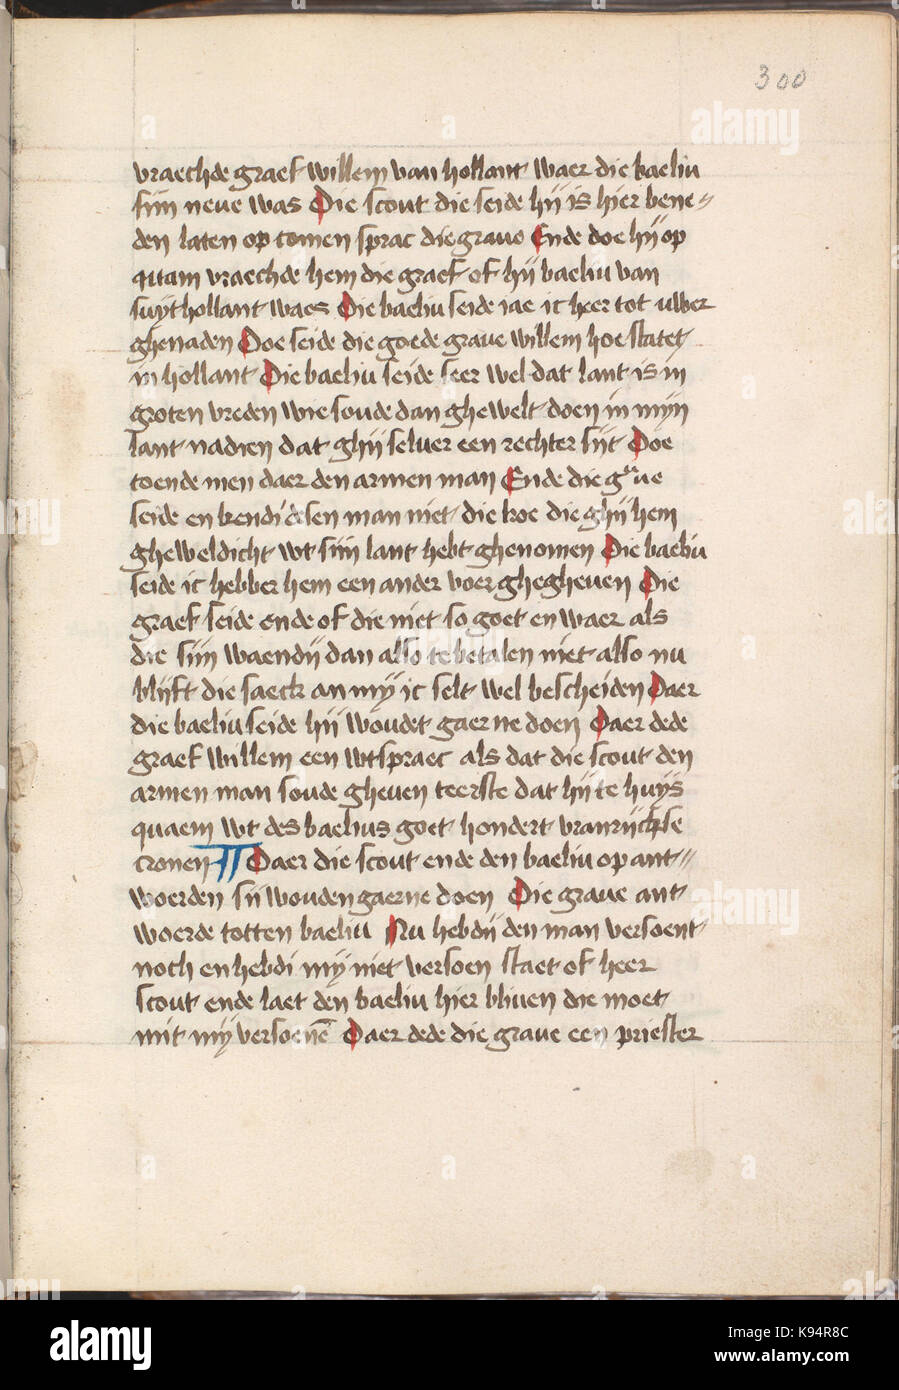 300
vraechde graef willem van hollant waer die baeliu
sijn neue was Die scout die seide hij is hier bene⸗
den laten op comen sprac die graue Ende doe hij op
quam vraechde hem die graef of hij baeliu van
suythollant waes Die baeliu seide iae ic heer tot uwer
ghenaden Doe seide die goede graue willem hoe statet
in hollant Die baeliu seide seer wel dat lant is in
groten vreden wie soude dan ghewelt doen in mijn
lant nadien dat ghij seluer een rechter sijt Doe
toende men daer den armen man Ende die graue
seide en kendi desen man niet die koe die ghij hem
gheweldicht wt sijn lant hebt ghenomen Die baeliu
seide ic hebber hem een ander voer ghegheuen Die
graef seide ende of die niet so goet en waer als
die sijn waendij dan also te betalen niet also nu
blijft die saeck an mij ic selt wel bescheiden Daer
die baeliu seide hij woudet gaerne doen Daer dede
graef willem een wtspraec als dat die scout den
armen man soude gheuen teerste dat hij te huys
quaem wt des baelius goet hondert vranrijckse
cronen Daer die scout ende den baeliu op ant⸗
woerden sij wouden gaerne doen Die graue ant
woerde totten baeliu Nu hebdij den man versoent
noch en hebdi mij niet versoen staet of heer
scout ende laet den baeliu hier bliuen die moet
mit mij versoenē Daer dede die graue een priester
alamy
K94R8C
www.alamy.com